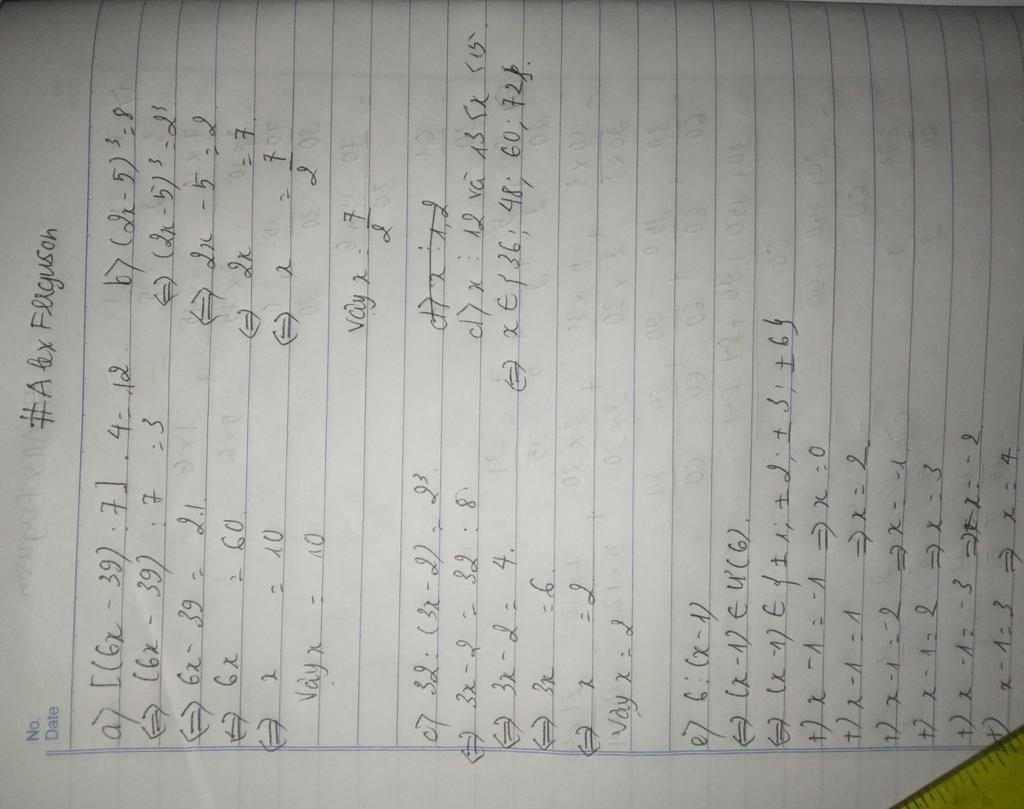 No.
Date
#Alex Ferguson
a) [(6x - 39) : 7] . 4 = 12
⇔ (6x - 39) : 7 = 3
⇔ 6x - 39 = 21
⇔ 6x = 60
⇔ x = 10
Vậy x = 10
b) (2x - 5)³ = 8
⇔ (2x - 5)³ = 2³
⇔ 2x - 5 = 2
⇔ 2x = 7
⇔ x = 7/2
Vậy x = 7/2
c) 32 : (3x - 2) = 2³
⇔ 3x - 2 = 32 : 8
⇔ 3x - 2 = 4
⇔ 3x = 6
⇔ x = 2
Vậy x = 2
d) x ⋮ 12
d) x ⋮ 12 và 13 < x < 75
⇔ x ∈ {36; 48; 60; 72}
e) 6 ⋮ (x - 1)
⇔ (x - 1) ∈ Ư(6)
⇔ (x - 1) ∈ {±1; ±2; ±3; ±6}
+) x - 1 = -1 ⇒ x = 0
+) x - 1 = 1 ⇒ x = 2
+) x - 1 = -2 ⇒ x = -1
+) x - 1 = 2 ⇒ x = 3
+) x - 1 = -3 ⇒ x = -2
+) x - 1 = 3 ⇒ x = 4